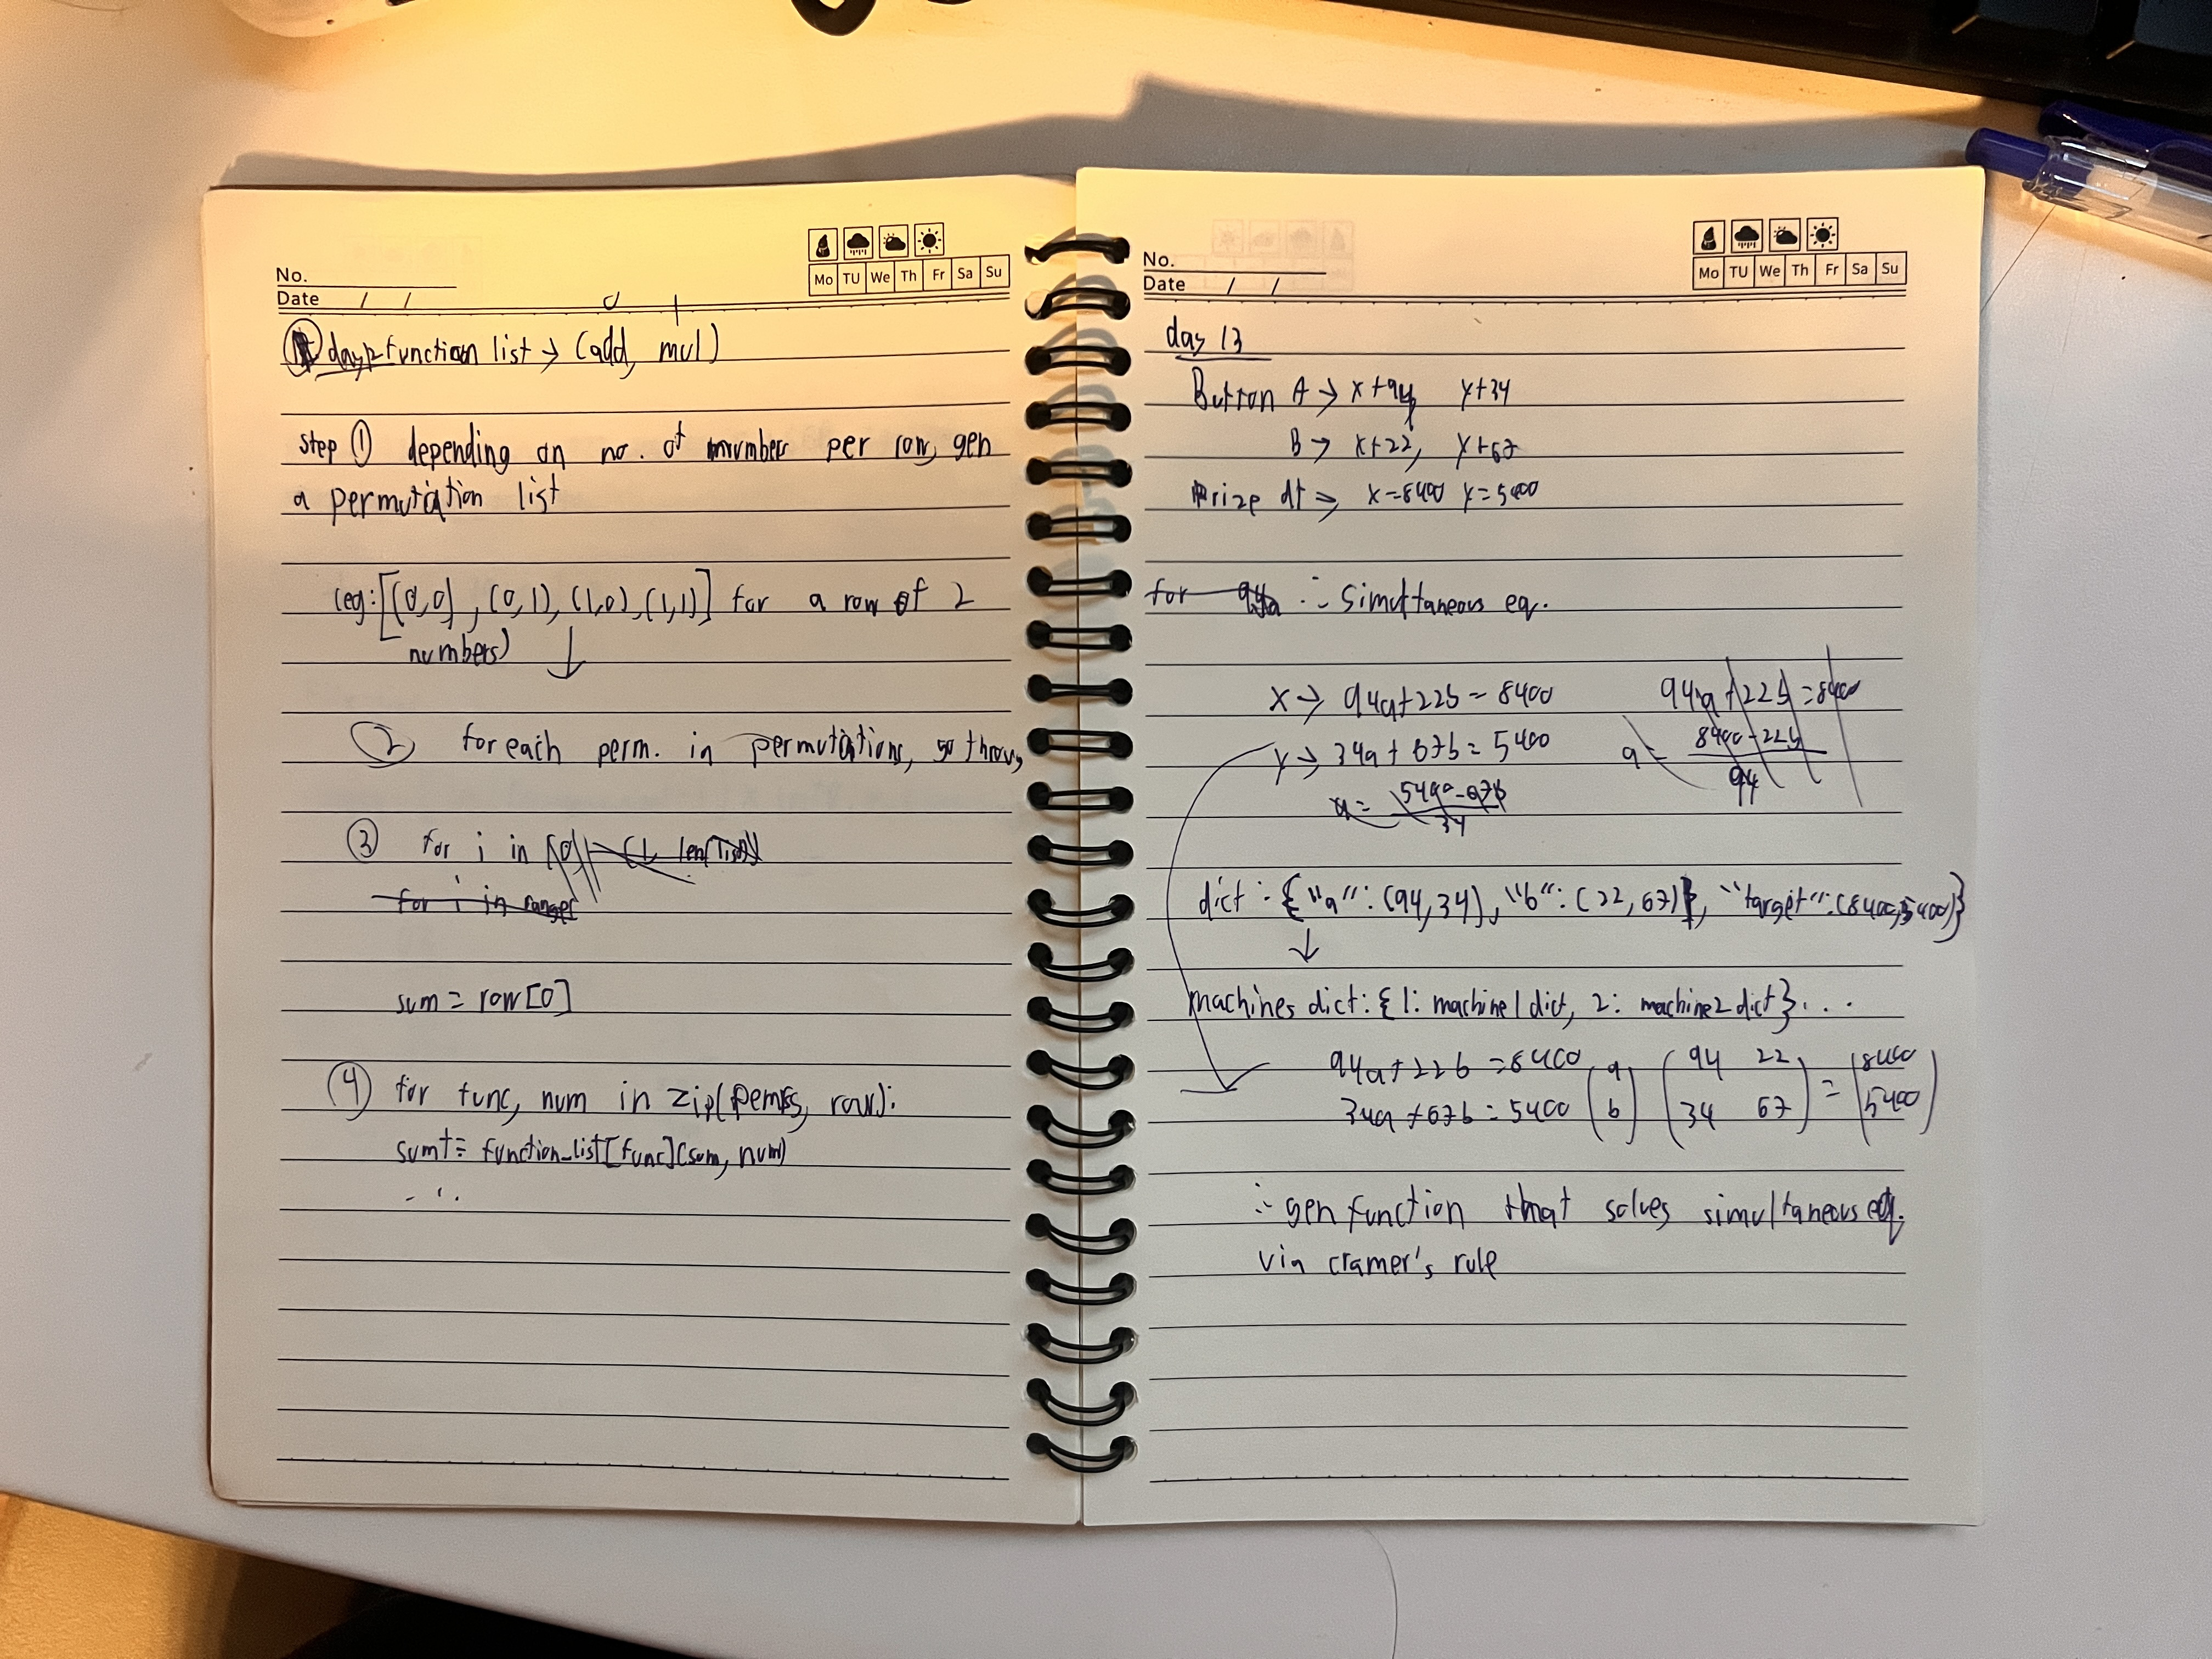 No.
Date / /
Mo TU We Th Fr Sa Su
0 1
function list → (add, mul)
step ① depending on no. of number per row, gen
a permutation list
(eg: [(0,0), (0,1), (1,0), (1,1)] for a row of 2
numbers)
↓
② for each perm. in permutations, go
③ for i in
for i in range(
sum = row[0]
④ for func, num in zip(perms, row):
sum+= function_list[func](sum, num)
...
No.
Date / /
Mo TU We Th Fr Sa Su
day 13
Button A → x+94, y+34
B → x+22, y+67
Prize at → x=8400 y=5400
for 94a ∴ Simultaneous eq.
x → 94a+22b = 8400
94a+22b=8400
y → 34a+67b=5400
a = 8400-22b / 94
a = 5400-67b / 34
dict : {"a": (94,34), "b": (22,67), "target": (8400,5400)}
↓
machines dict: {1: machine1dict, 2: machine2dict}...
94a+22b=8400 (a (94 22) = (8400
34a+67b=5400 b) (34 67) 5400)
∴ gen function that solves simultaneous eq.
via cramer's rule